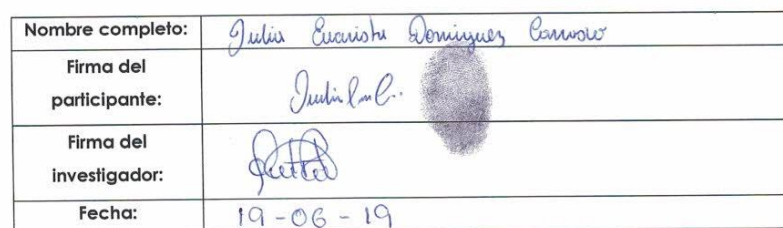 Nombre completo: Julia Evarista Dominguez
Firma del
participante:
Firma del
investigador:
Fecha: 19-06-19